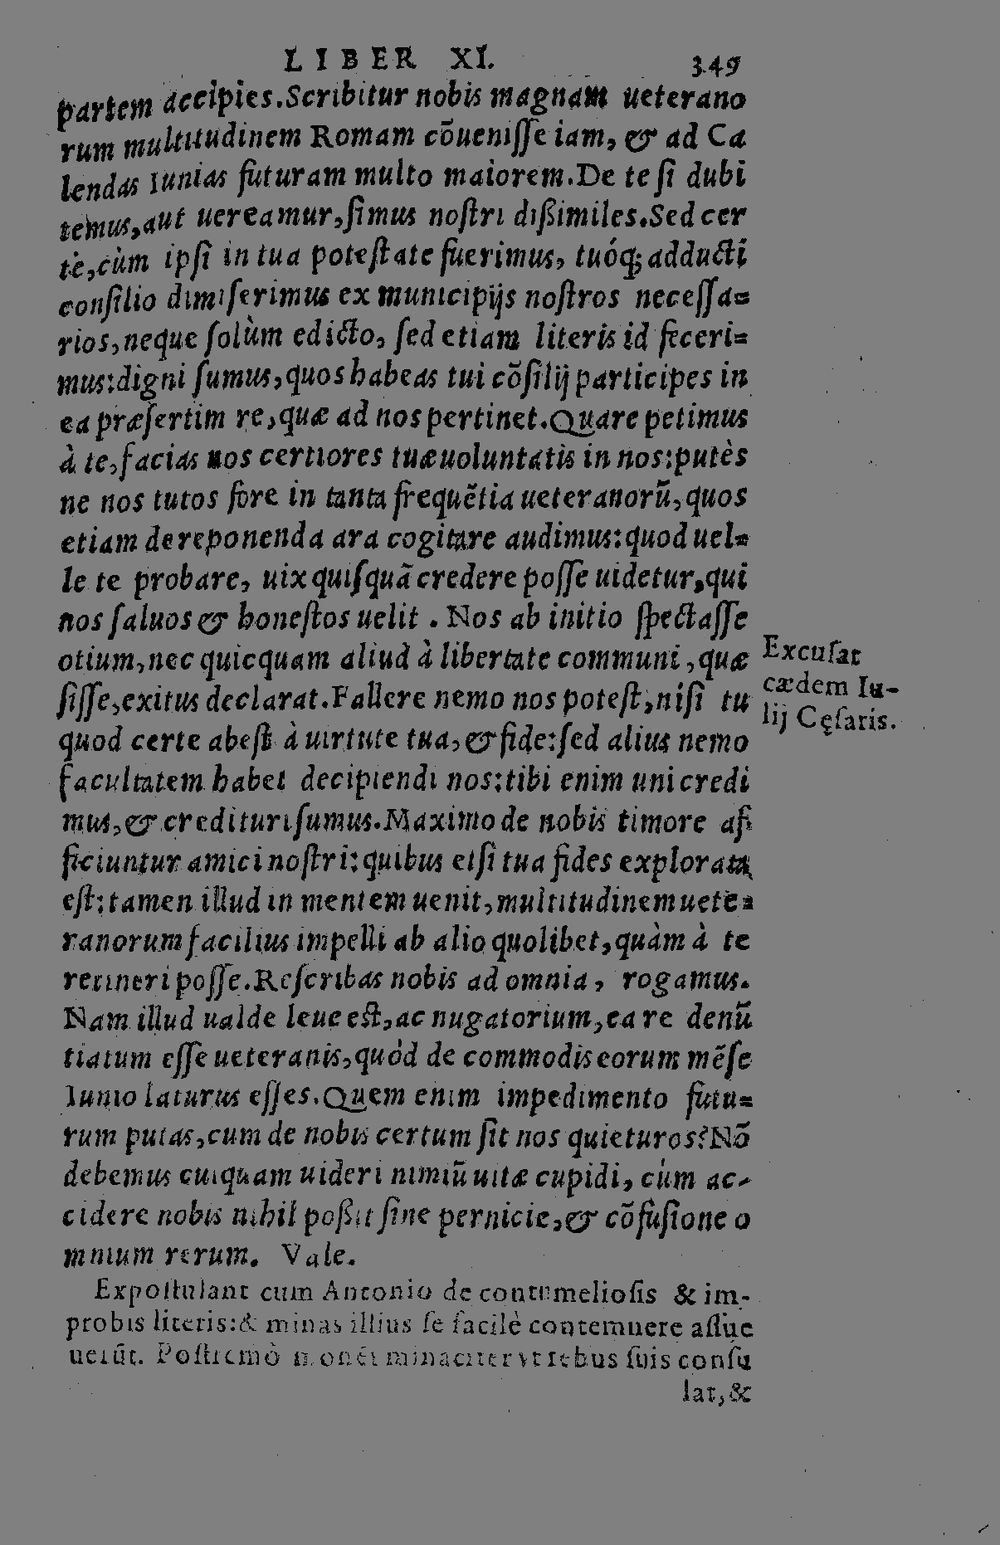 LIBER XI. 349
partem accipies. Scribitur nobis magnam ueterano
rum multitudinem Romam cõuenisse iam, & ad Ca
lendas Iunias futuram multo maiorem. De te si dubi
temus, aut uereamur, simus nostri dißimiles. Sed cer
tè, cùm ipsi in tua potestate fuerimus, tuóq; adducti
consilio dimiserimus ex municipijs nostros necessa=
rios, neque solùm edicto, sed etiam literis id feceri=
mus: digni sumus, quos habeas tui cõsilij participes in
ea præsertim re, quæ ad nos pertinet. Quare petimus
à te, facias nos certiores tuæ uoluntatis in nos: putès
ne nos tutos fore in tanta frequẽtia ueteranorũ, quos
etiam de reponenda ara cogitare audimus: quod uel=
le te probare, uix quisquã credere posse uidetur, qui
nos saluos & honestos uelit. Nos ab initio spectasse
otium, nec quicquam aliud à libertate communi, quæ
sisse, exitus declarat. Fallere nemo nos potest, nisi tu
quod certe abest à uirtute tua, & fide: sed alius nemo
facultatem habet decipiendi nos: tibi enim uni credi
mus, & credituri sumus. Maximo de nobis timore af
ficiuntur amici nostri: quibus etsi tua fides explorata
est: tamen illud in mentem uenit, multitudinem uete=
ranorum facilius impelli ab alio quolibet, quàm à te
retineri posse. Rescribas nobis ad omnia, rogamus.
Nam illud ualde leue est, ac nugatorium, ea re denũ
tiatum esse ueteranis, quòd de commodis eorum mẽse
Iunio laturus esses. Quem enim impedimento futu=
rum putas, cum de nobis certum sit nos quieturos? Nõ
debemus cuiquam uideri nimiũ uitæ cupidi, cùm ac-
cidere nobis nihil poßit sine pernicie, & cõfusione o
mnium rerum. Vale.
Excusat
cædem Iu-
lij Cęsaris.
Expostulant cum Antonio de contumeliosis & im-
probis literis: & minas illius se facilè contemnere assue
uerũt. Postremò monet minaciter vt rebus suis consu
lat, &